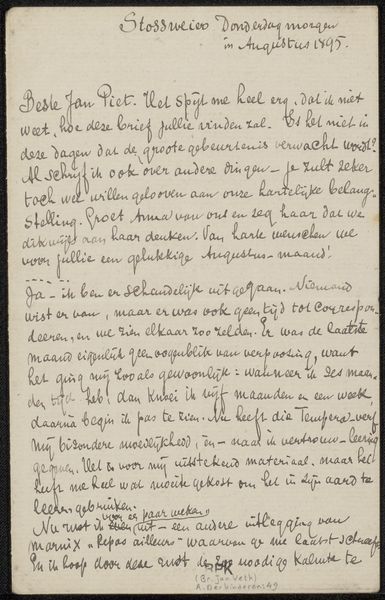 Stossweier Donderdag morgen
in Augustus 1895.
Beste Jan Piet. Het spijt me heel erg, dat ik niet
weet, hoe deze brief jullie vinden zal. Is het niet in
deze dagen dat de groote gebeurtenis verwacht wordt?
Al schrijf ik ook over andere dingen – je zult zeker
toch wel willen gelooven aan onze hartelijke belang-
stelling. Groet Anna van ons en zeg haar dat we
dikwijls aan haar denken. Van harte wenschen we
voor jullie een gelukkige Augustus-maand!
Ja – ik ben er schandelijk uit gegaan. Niemand
wist er van, maar er was ook geen tijd tot correspon-
deeren, en we zien elkaar zoo zelden. Er was de laatste
maand eigenlijk geen oogenblik van verpoozing, want
het ging mij zooals gewoonlijk: wanneer ik zes maan-
den tijd heb, dan knoei ik vijf maanden en een week,
daarna begin ik pas te zien. Nu heeft die Tempera-verf
mij bizondere moeilijkheid, en – naar ik vertrouw – leering
gegeven. Het is voor mij uitstekend materiaal, maar het
heeft me heel wat moeite gekost om het in zijn aard te
leeren gebruiken.
voor een paar weken
Nu wat ik uit – een andere uitlegging van
marnix "Repos ailleurs" waarvan ge me laatst schreeft
En ik hoop door deze rust de noodige kalmte te
(Br. Jan Veth)
A. Derkinderen: 49